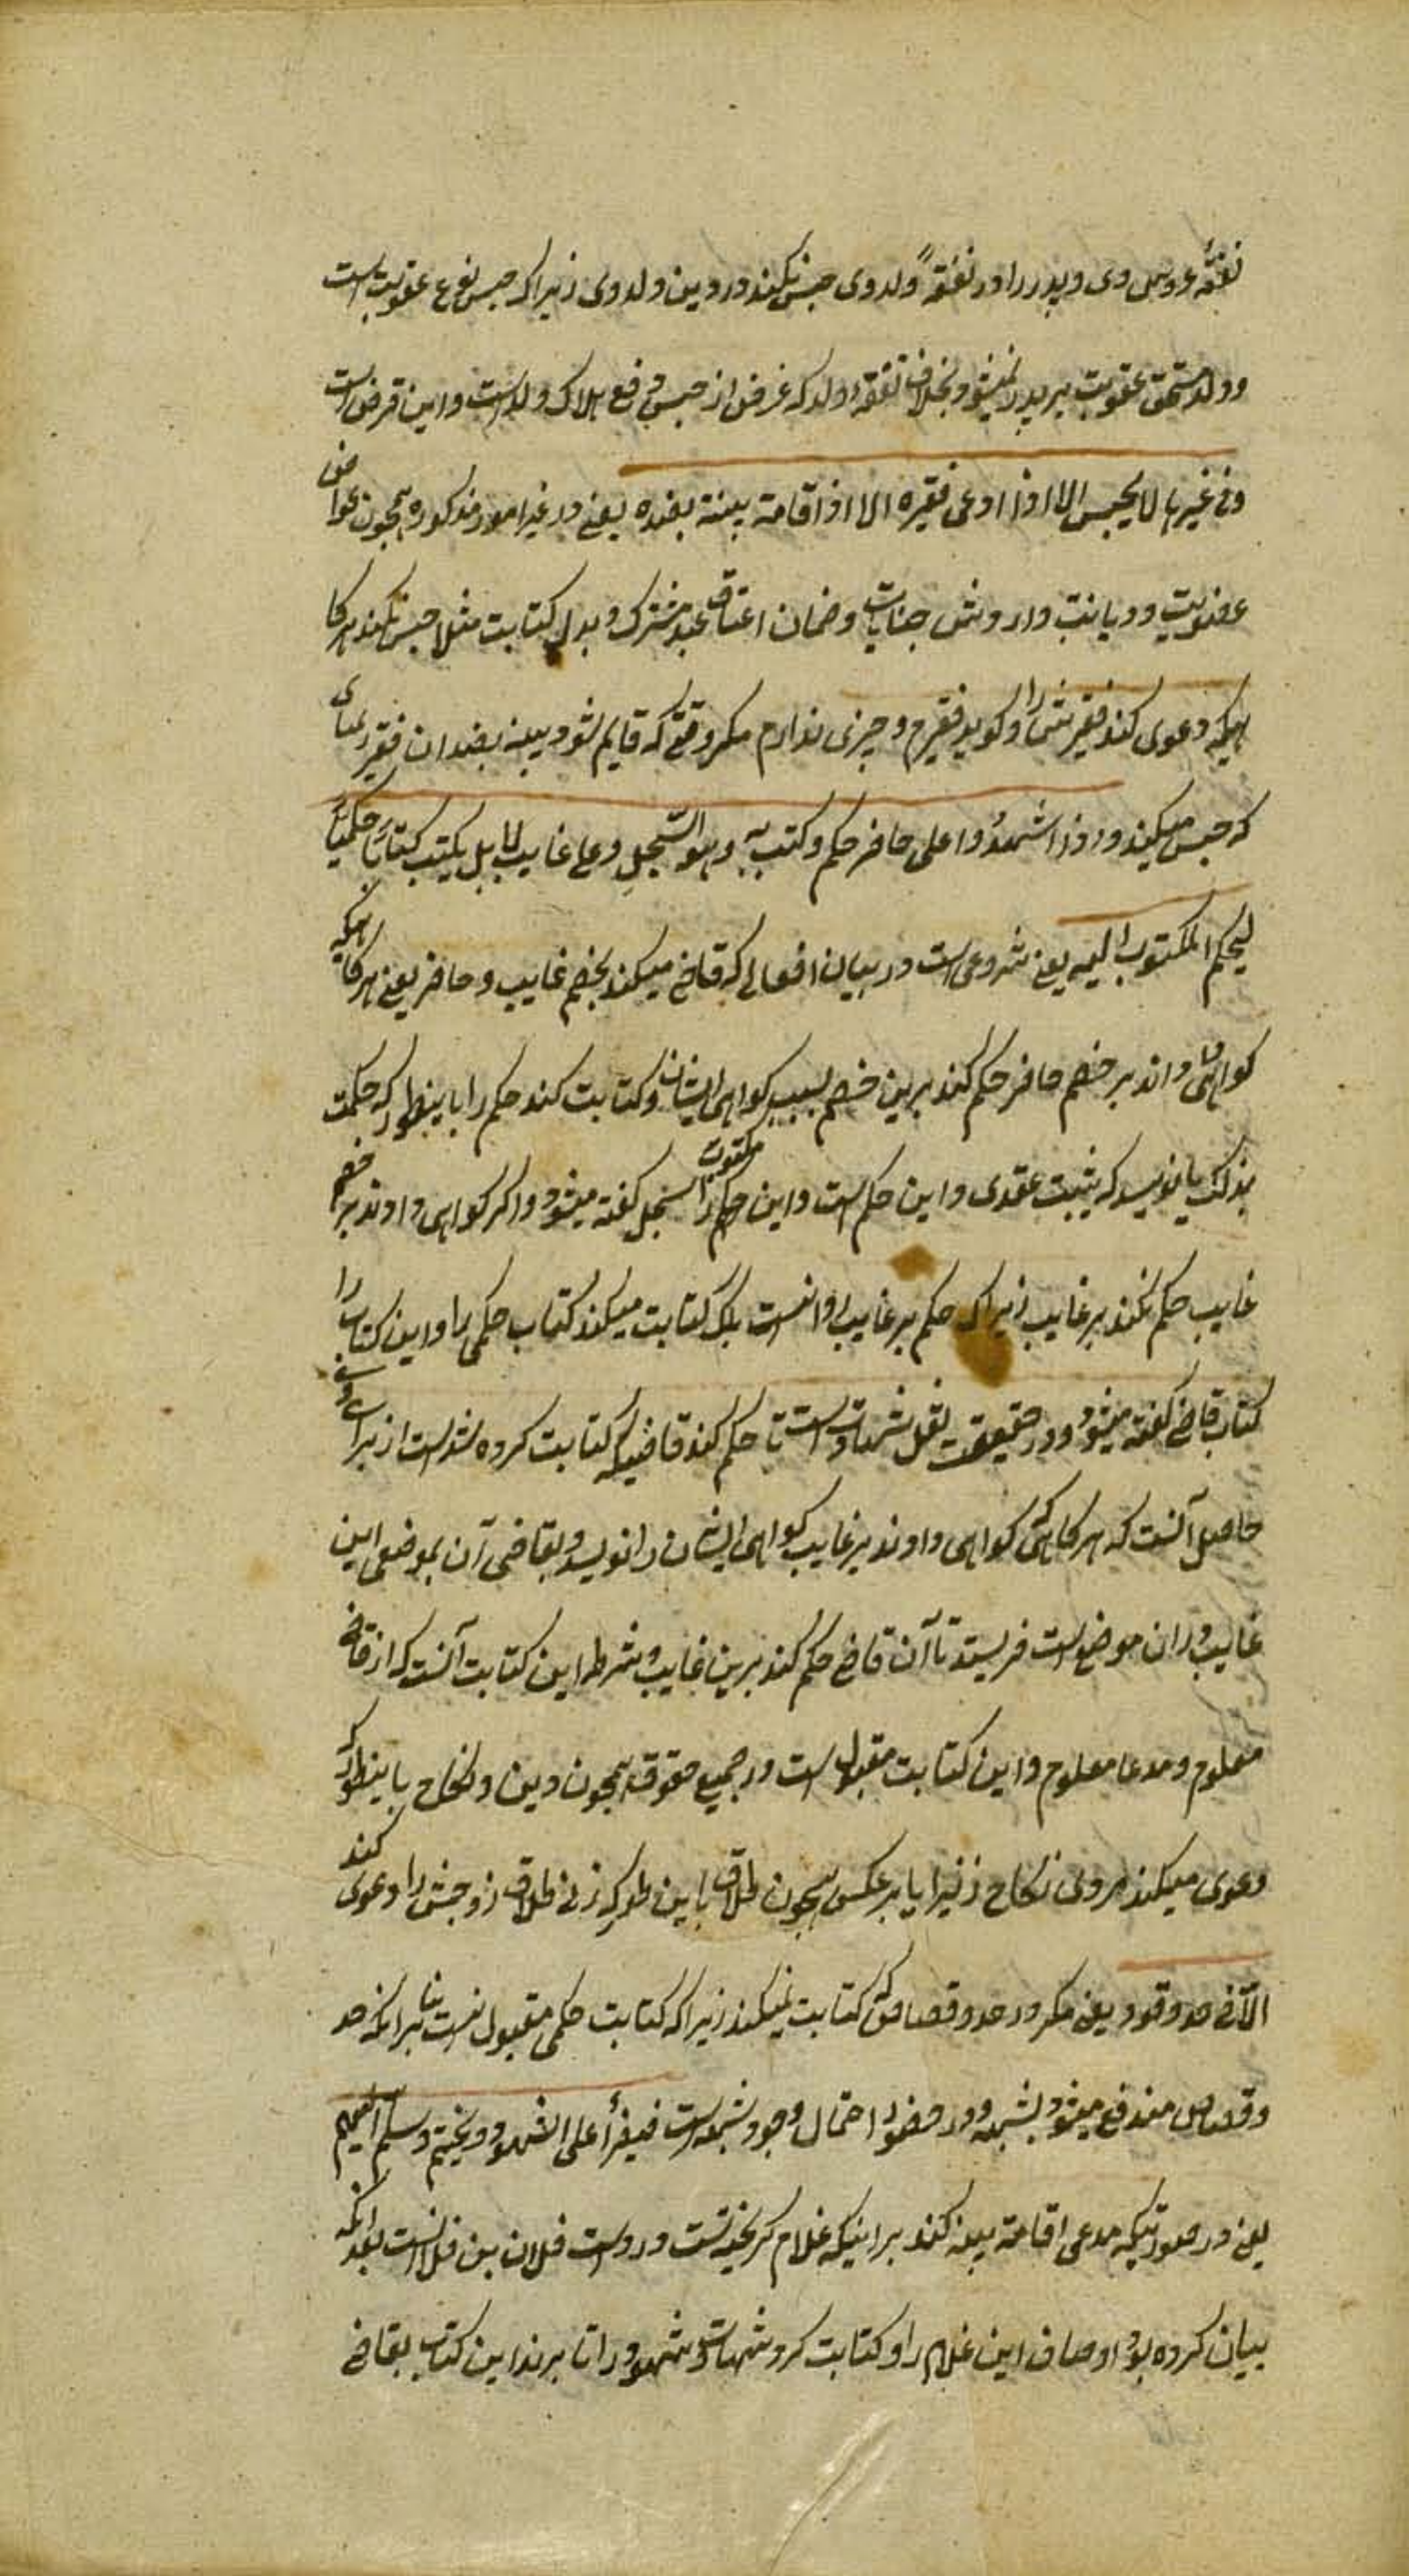 نفقهٔ عروس وی و پدر را در نفقهٔ ولد وی حبس نکند در دین ولد وی زیراکه حبس نوع عقوبت است
و ولد مستحق عقوبت بر پدر نمیشود بخلاف نفقه ولد که غرض از حبس دفع هلاک ولد است و این فرض است
و فی غیرها لا یحبس الا اذا ادعی فقیره الا اذا قامة بینة بضده یعنی در غیر امور مذکوره همچون عوا
عضویت و دیانت وارونش جنایات و ضمان اعتاق عبد مشترک و بدل کتابت مثلا حبس نکند هرکا
هیکه دعوی کند فقیریش را و کوید فقیرم و چیزی ندارم مکر وقتی که قایم شود بینه بضد ان فقیر
که حبس میکند و اذا شهدوا علی حاضر حکم و کتب به وهو السجل و علی غایب لا بل یکتب کتابا حکمیا
لیحکم المکتوب الیه یعنی شروعی است در بیان افعالی که قاضی میکند بخصم غایب و حاضر یعنی هرکاهیکه
کواهی داند بر خصم حاضر حکم کند برین خصم بسبب کواهی ایشان و کتابت کند حکم را باینطور که حکمت
بذلک یا نویسد که یثبت عندی و این حکم است و این حکم مکتوب را سجل کفته میشود و اکر کواهی دادند بر خصم
غایب حکم نکند بر غایب زیراکه حکم بر غایب روا نست بلکه کتابت میکند کتاب حکمی را و این کتاب را
کتاب قاضی کفته میشود و در حقیقت نقل شهادت است تا حکم کند قاضیکه کتابت کرده شد است از برای وی
حاصل آنست که هرکاهیکه کواهی دادند بر غایب کواهی ایشان را نویسد و بقاضی آن بموضعی این
غایب در ان موضع است فریستد تا آن قاضی حکم کند برین غایب و شرط این کتابت آنست که از قاضی
معلوم و مدعا معلوم و این کتابت مقبول است در جمیع حقوق همچون دین و نکاح باینطور که
دعوی میکند مردی نکاح زنیرا یا برعکس همچون طلاق باین طور که زنی طلاق زوجش را دعوی کند
الا فی حد و قود یعنی مکر در حد و قصاص که کتابت نمیکند زیراکه کتابت حکمی مقبول نست بنا برانکه حد
و قصاص مندفع میشود بشبهه و در حضور احتمال وجود شبهه است فیقرأ علی الشهود و یختم و سلم الیهم
یعنی در صورتیکه مدعی اقامة بینه کند بر اینیکه غلام کریخته تست در دست فلان بن فلانست بعد انکه
بیان کرده بود اوصاف این غلام را و کتابت کرد شهادت شهود را تا برند این کتاب بقاضی